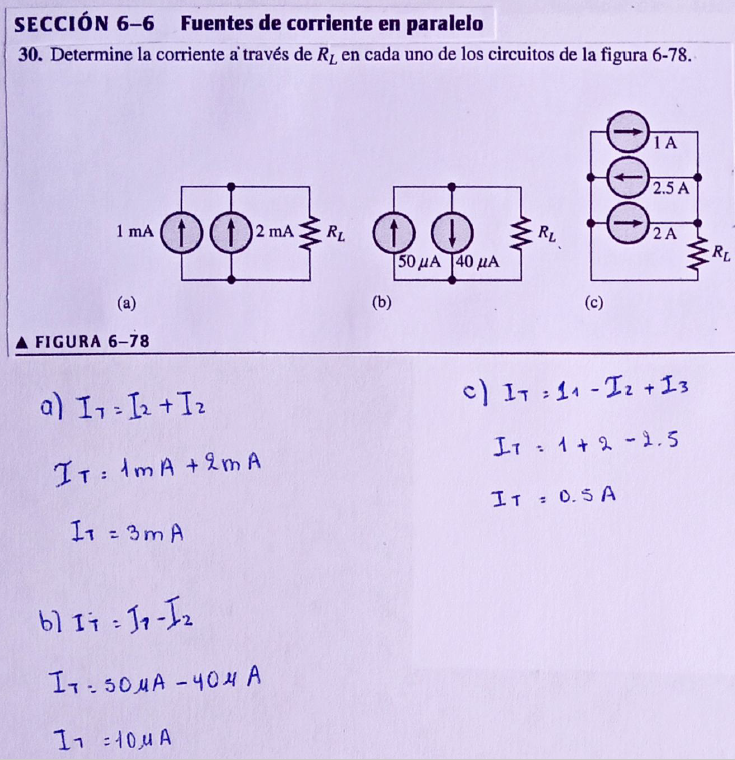 SECCIÓN 6–6 Fuentes de corriente en paralelo
30. Determine la corriente a través de R_L en cada uno de los circuitos de la figura 6-78.
1 mA
2 mA
R_L
(a)
50 μA
40 μA
R_L
(b)
1 A
2.5 A
2 A
R_L
(c)
▲ FIGURA 6–78
a) I_T = I_2 + I_2
I_T = 1mA + 2mA
I_T = 3mA
b) I_T = I_1 - I_2
I_T = 50μA - 40μA
I_T = 10μA
c) I_T = I_1 - I_2 + I_3
I_T = 1 + 2 - 2.5
I_T = 0.5 A